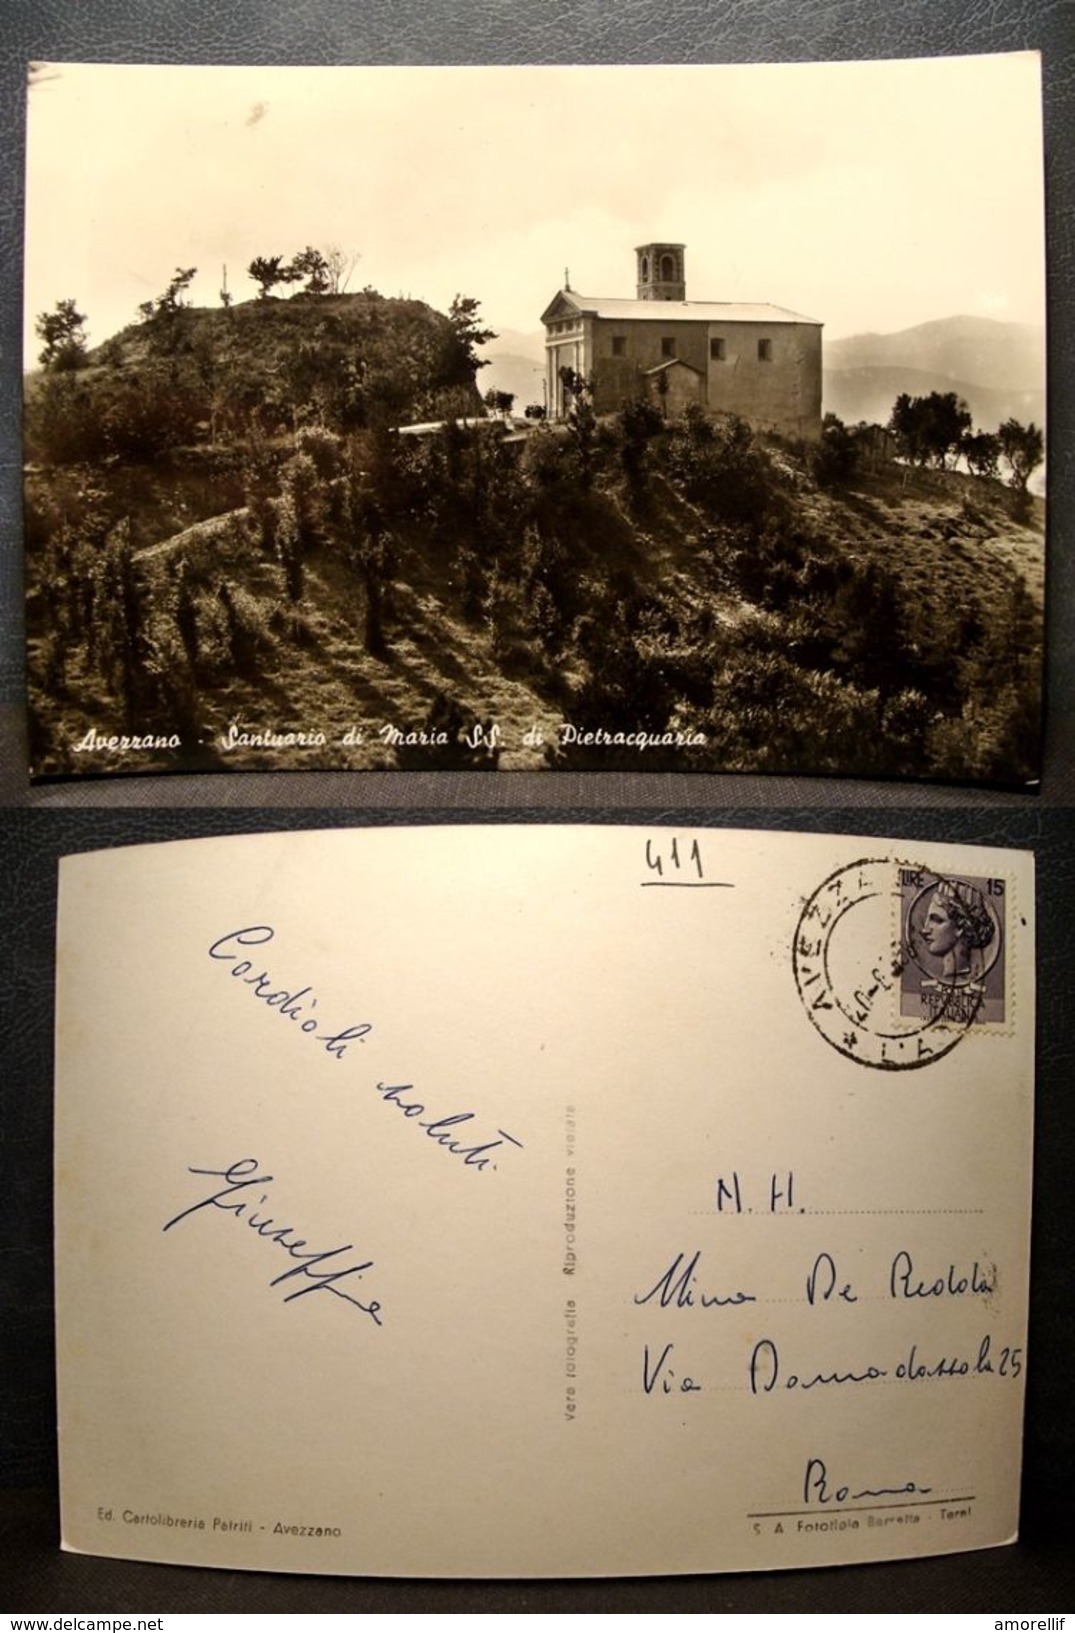 Avezzano - Santuario di Maria SS. di Pietracquaria
411
LIRE 15
REPUBBLICA
ITALIANA
Cordiali saluti
Giuseppe
Vera fotografia Riproduzione vietata
N. H.
Mimo De Redda
Via Domodossola 25
Roma
Ed. Cartolibreria Patriti - Avezzano
S. A. Fototipia Berretta - Terni
delcampe.net
amorellif